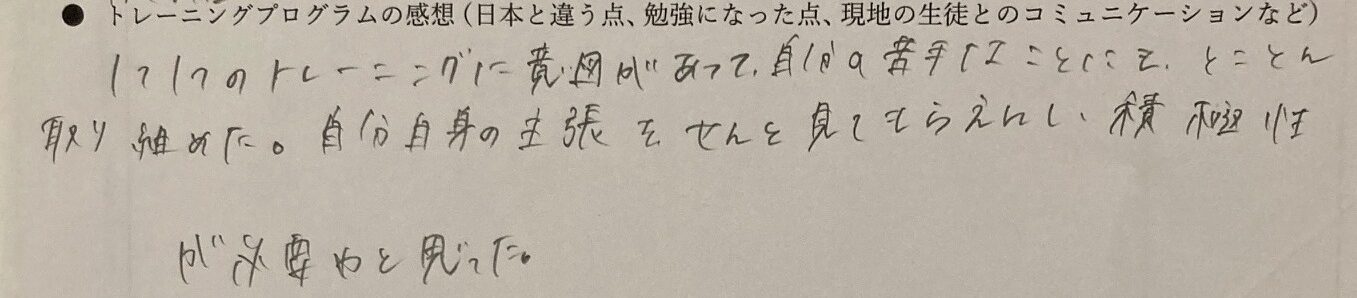 ● トレーニングプログラムの感想（日本と違う点、勉強になった点、現地の生徒とのコミュニケーションなど）
1つ1つのトレーニングに意図があって、自分の苦手なことにも、とことん
取り組めた。自分自身の主張を せんと見てもらえんし、積極性
が必要やと思った。